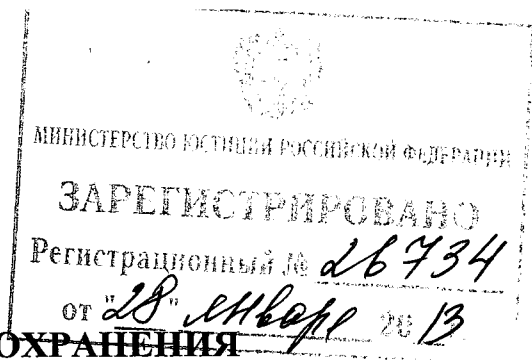 МИНИСТЕРСТВО ЮСТИЦИИ РОССИЙСКОЙ ФЕДЕРАЦИИ
ЗАРЕГИСТРИРОВАНО
Регистрационный № 26734
от "28" января 2013
ОХРАНЕНИЯ